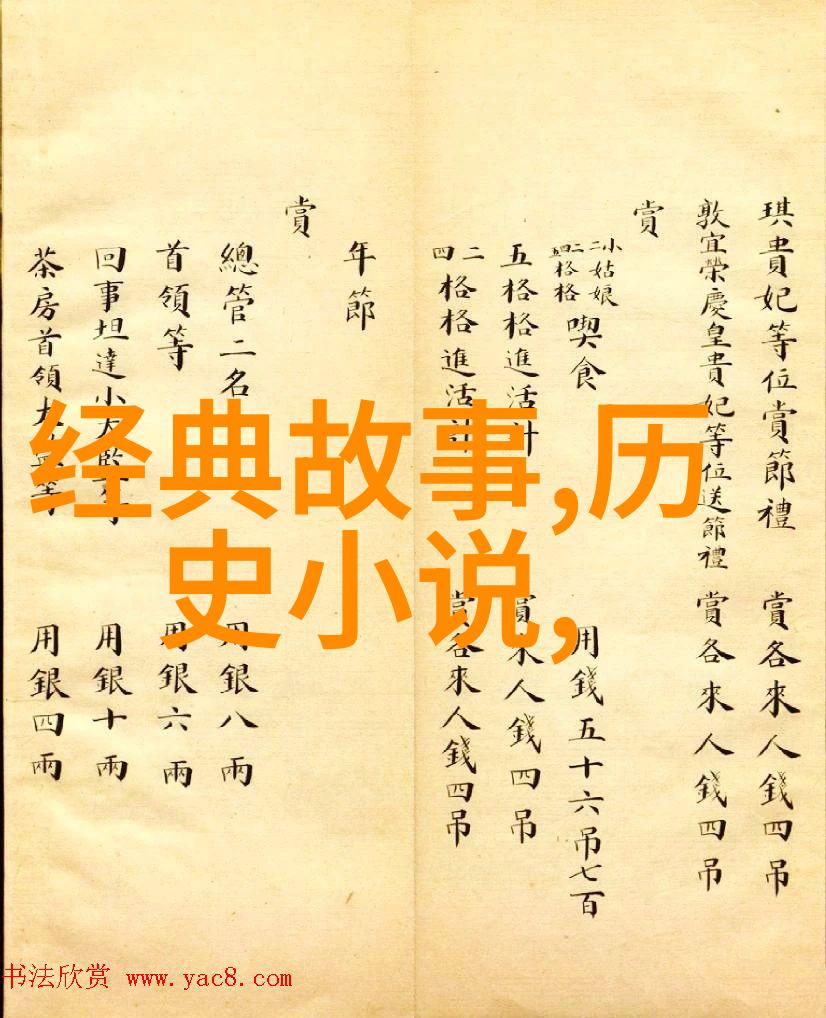 琪貴妃等位賞節禮 賞各來人錢四吊
敦宜榮慶皇貴妃等位送節禮 賞各來人錢四吊
賞
小姑娘
二二格格
四五格格
喫食 用錢五十六吊七百
五格格進活計 賞來人錢四吊
二四格格進活計 賞各來人錢四吊
年節
賞
總管二名 用銀八兩
首領等 用銀六兩
回事坦達小太監等 用銀十兩
茶房首領太監等 用銀四兩
经典故事,历
史小说,
书法欣赏 www.yac8.com